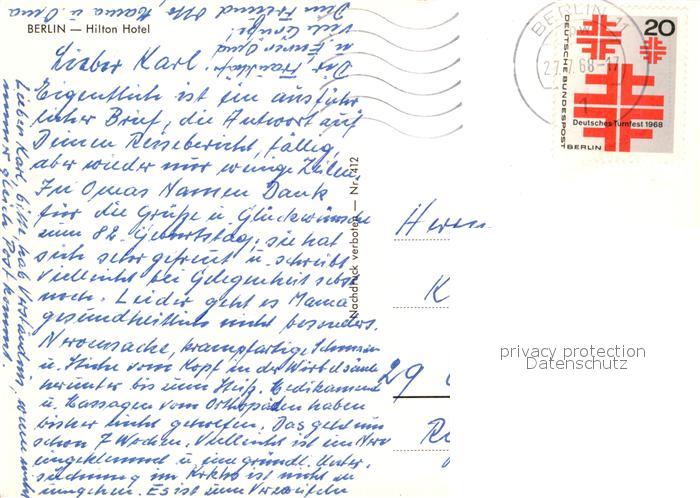 BERLIN — Hilton Hotel
Lieber Karl!
Eigentlich ist ein ausführ
licher Brief, die Antwort auf
Deinen Reisebericht, fällig,
aber wieder nur wenige Zeilen.
In Omas Namen Dank
für die Grüße u. Glückwünsche
zum 82. Geburtstag; sie hat
sich sehr gefreut u. schreibt
vielleicht bei Gelegenheit selbst
noch. Leider geht es Mama
gesundheitlich nicht besonders.
Nervensache, krampfartige Schmerzen
u. Stiche vom Kopf in der Wirbelsäule
herunter bis zum Steiß. Medikamente
u. Massagen vom Orthopäden haben
bisher nicht geholfen. Das geht nun
schon 7 Wochen. Vielleicht ist ein Nerv
eingeklemmt u. eine gründl. Unter,
suchung im Krkhs ist nicht zu
umgehen. Es ist zum Verzweifeln
Lieber Karl, bitte hab Verständnis, wenn nicht
immer gleich Post kommt.
viele Grüße!
Dein Freund Otto, Mama u. Oma
Nachdruck verboten — Nr. 412
BERLIN 11
68-17
1
20
DEUTSCHE BUNDESPOST
BERLIN
Deutsches Turnfest 1968
Herrn
K
29
privacy protection
Datenschutz